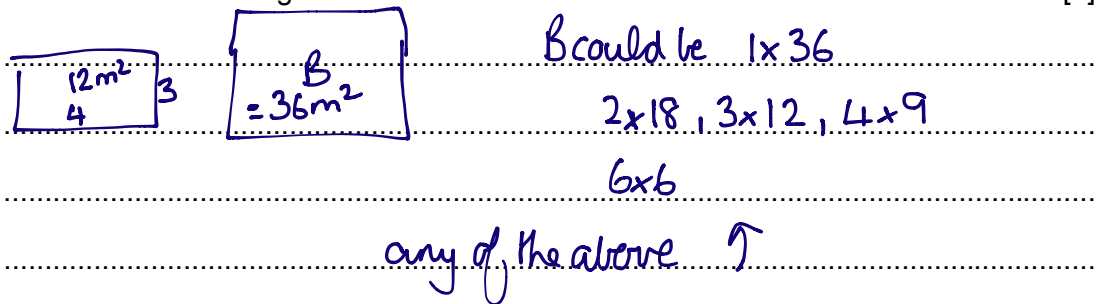 12m² 3
4
B
= 36m²
B could be 1x36
2x18, 3x12, 4x9
6x6
any of the above ↑